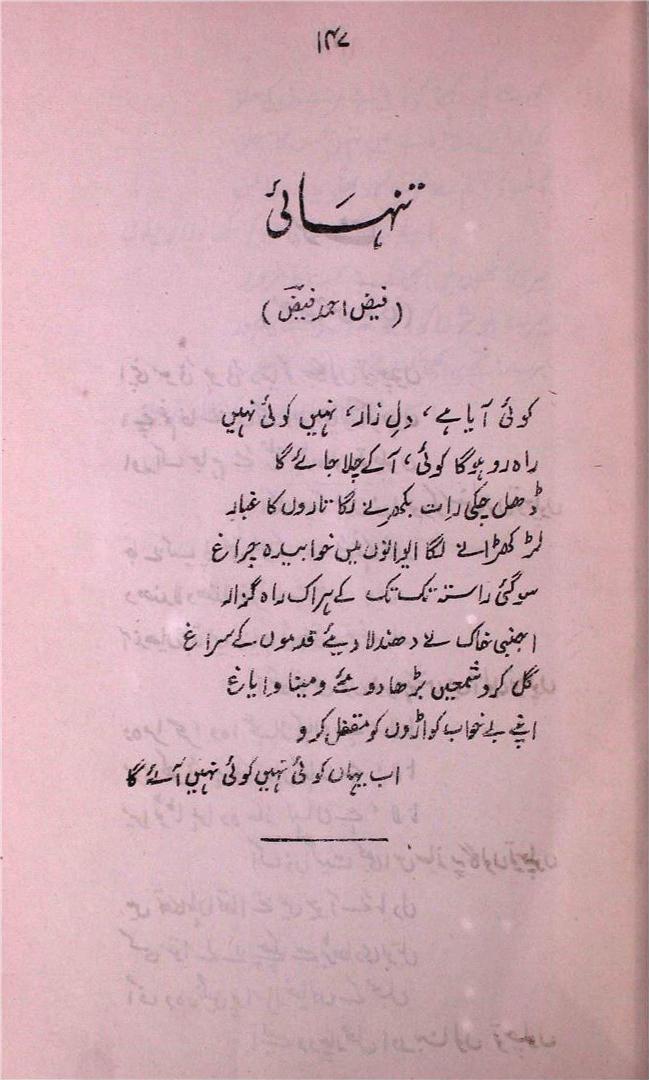 ۱۴۷
تنہائی
(فیض احمد فیضؔ)
کوئی آیا ہے، دلِ زار، نہیں کوئی نہیں
راہ رو ہوگا کوئی، آکے چلا جائے گا
ڈھل چکی رات بکھرنے لگا تاروں کا غبار
لڑکھڑانے لگا ایوانوں میں خوابیدہ چراغ
سوگئی راستہ تک تک کے ہر اک راہ گزار
اجنبی خاک نے دھندلا دیئے قدموں کے سراغ
گل کرو شمعیں بڑھا دو مئے و مینا و ایاغ
اپنے بے خواب کواڑوں کو مقفل کرو
اب یہاں کوئی نہیں کوئی نہیں آئے گا